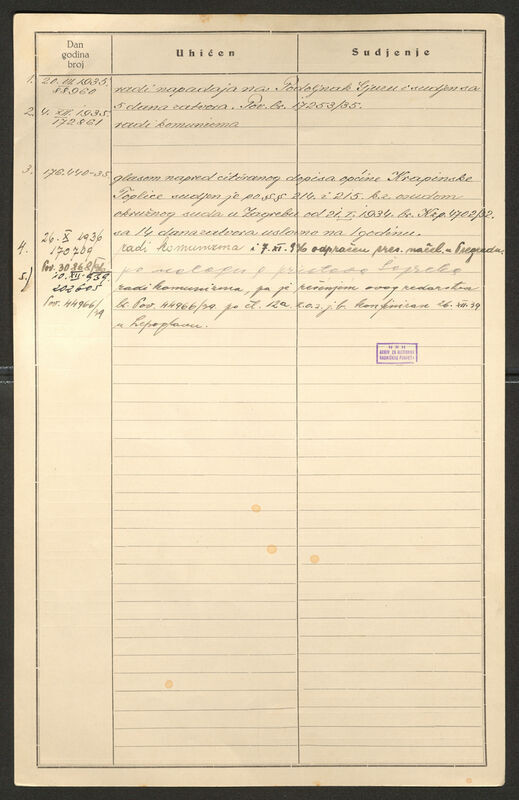 Dan
godina
broj
Uhićen
Sudjenje
1. 20. VII. 1935. radi napadaja na Podoljnak Gjuru i sudjen sa
88960 5 dana zatvora. Pov. br. 17253/35.
2. 4. XII. 1935. radi komunizma
172861
3. 176.440-35. glasom napred citiranog dopisa općine Krapinske
Toplice sudjen je po §§ 214. i 215. k.z. osudom
okružnog suda u Zagrebu od 21. I. 1934. br. 4702/32.
sa 14 dana zatvora uslovno na 1 godinu.
4. 26. X. 1936 radi komunizma i 7. XI. 936 odpraćen pres. načel. u Beogradu.
170709
Pov. 30268/
5.) 10. XII. 939. radi komunizma, pa je rešenjem ovog redarstva
202605
Pov. 44966/39 br. Pov. 44966/39. po čl. 12a z.o.z.j.b. konfiniran 26. XII. 39
u Lepoglavu.
ARHIV ZA HISTORIJU
RADNIČKOG POKRETA